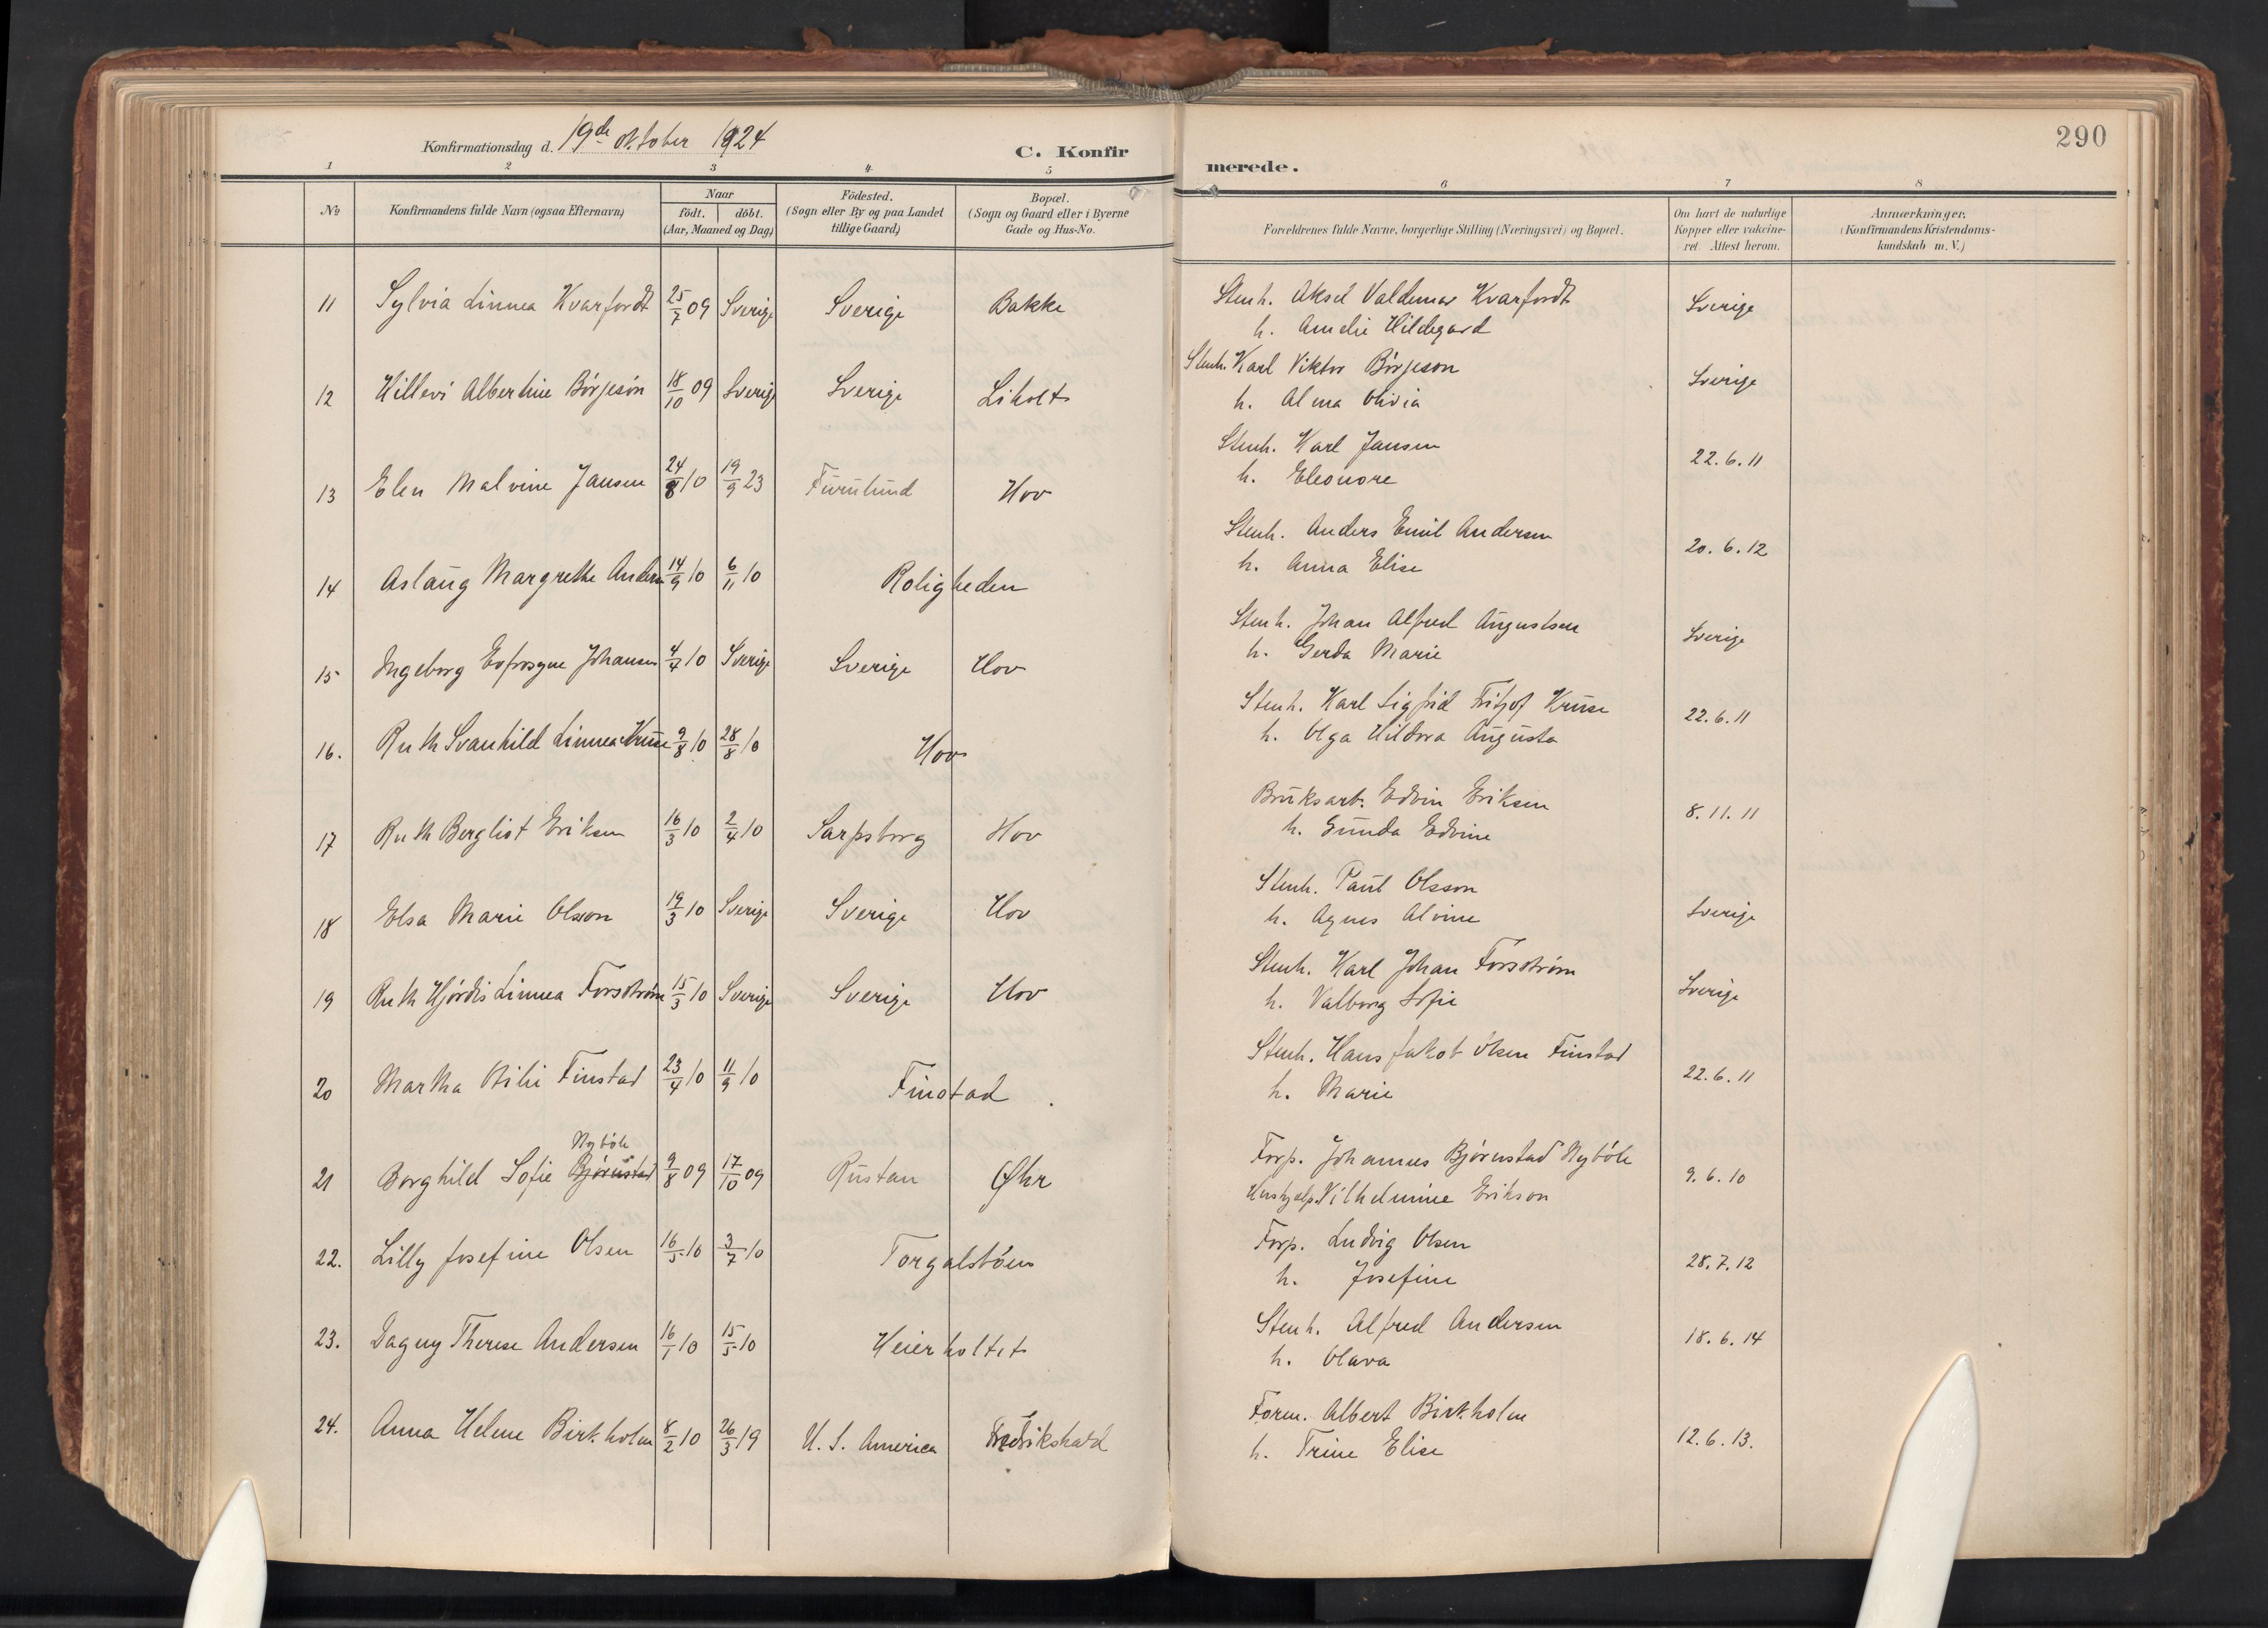 290
Konfirmationsdag d. 19de Oktober 1924
C. Konfirmerede.
1 2 3 4 5 6 7 8
No
Konfirmandens fulde Navn (ogsaa Efternavn)
Naar
födt. döbt.
(Aar, Maaned og Dag)
Födested.
(Sogn eller By og paa Landet
tillige Gaard)
Bopæl.
(Sogn og Gaard eller i Byerne
Gade og Hus-No.
Forældrenes fulde Navne, borgerlige Stilling (Næringsvei) og Bopæl.
Om havt de naturlige
Kopper eller vakcine-
ret. Attest herom.
Anmærkninger.
(Konfirmandens Kristendoms-
kundskab m. V.)
11 Sylvia Linnea Kvarfordt 25/7 09 Sverige Sverige Bakke Stenh. Aksel Valdemar Kvarfordt Sverige
h. Amelie Hildegard
12 Hillevi Albertine Börjesön 18/10 09 Sverige Sverige Liholt Stenh. Karl Viktor Börjeson Sverige
h. Alma Olivia
13 Elen Malvine Jansen 24/8 10 19/9 23 Furulund Hov Stenh. Karl Jansen 22.6.11
h. Eleonore
14 Aslaug Margrethe Andersen 14/9 10 6/11 10 Roligheden Stenh. Anders Emil Andersen 20.6.12
h. Anna Elise
15 Ingeborg Evfrosyne Johansen 4/4 10 Sverige Sverige Hov Stenh. Johan Alfred Augustsen Sverige
h. Gerda Marie
16. Ruth Svanhild Linnea Kruse 9/8 10 28/8 10 Hov Stenh. Karl Sigfrid Fritjof Kruse 22.6.11
h. Olga Hildora Augusta
17 Ruth Bergliot Eriksen 16/3 10 2/4 10 Sarpsborg Hov Bruksarb. Edvin Eriksen 8.11.11
h. Gunda Edvine
18 Elsa Marie Olsson 19/3 10 Sverige Sverige Hov Stenh. Paul Olsson Sverige
h. Agnes Alvine
19 Ruth Hjördis Linnea Forsström 15/3 10 Sverige Sverige Hov Stenh. Karl Johan Forsström Sverige
h. Valborg Sofie
20 Martha Otilie Finstad 23/4 10 11/9 10 Finstad Stenh. Hans Jakob Olsen Finstad 22.6.11
h. Marie
Nyböle
21 Borghild Sofie Björnstad 9/8 09 17/10 09 Rustan Øhr Forp. Johannes Björnstad Nyböle 9.6.10
Hushjelp. Vilhelmine Erikson
22. Lilly Josefine Olsen 16/5 10 3/7 10 Torgalsböen Forp. Ludvig Olsen 28.7.12
h. Josefine
23. Dagny Therese Andersen 16/1 10 15/5 10 Heierholtet Stenh. Alfred Andersen 18.6.14
h. Olava
24. Anna Helene Birkholm 8/2 10 26/3 19 U. S. America Fredrikshald Form. Albert Birkholm 12.6.13.
h. Trine Elise